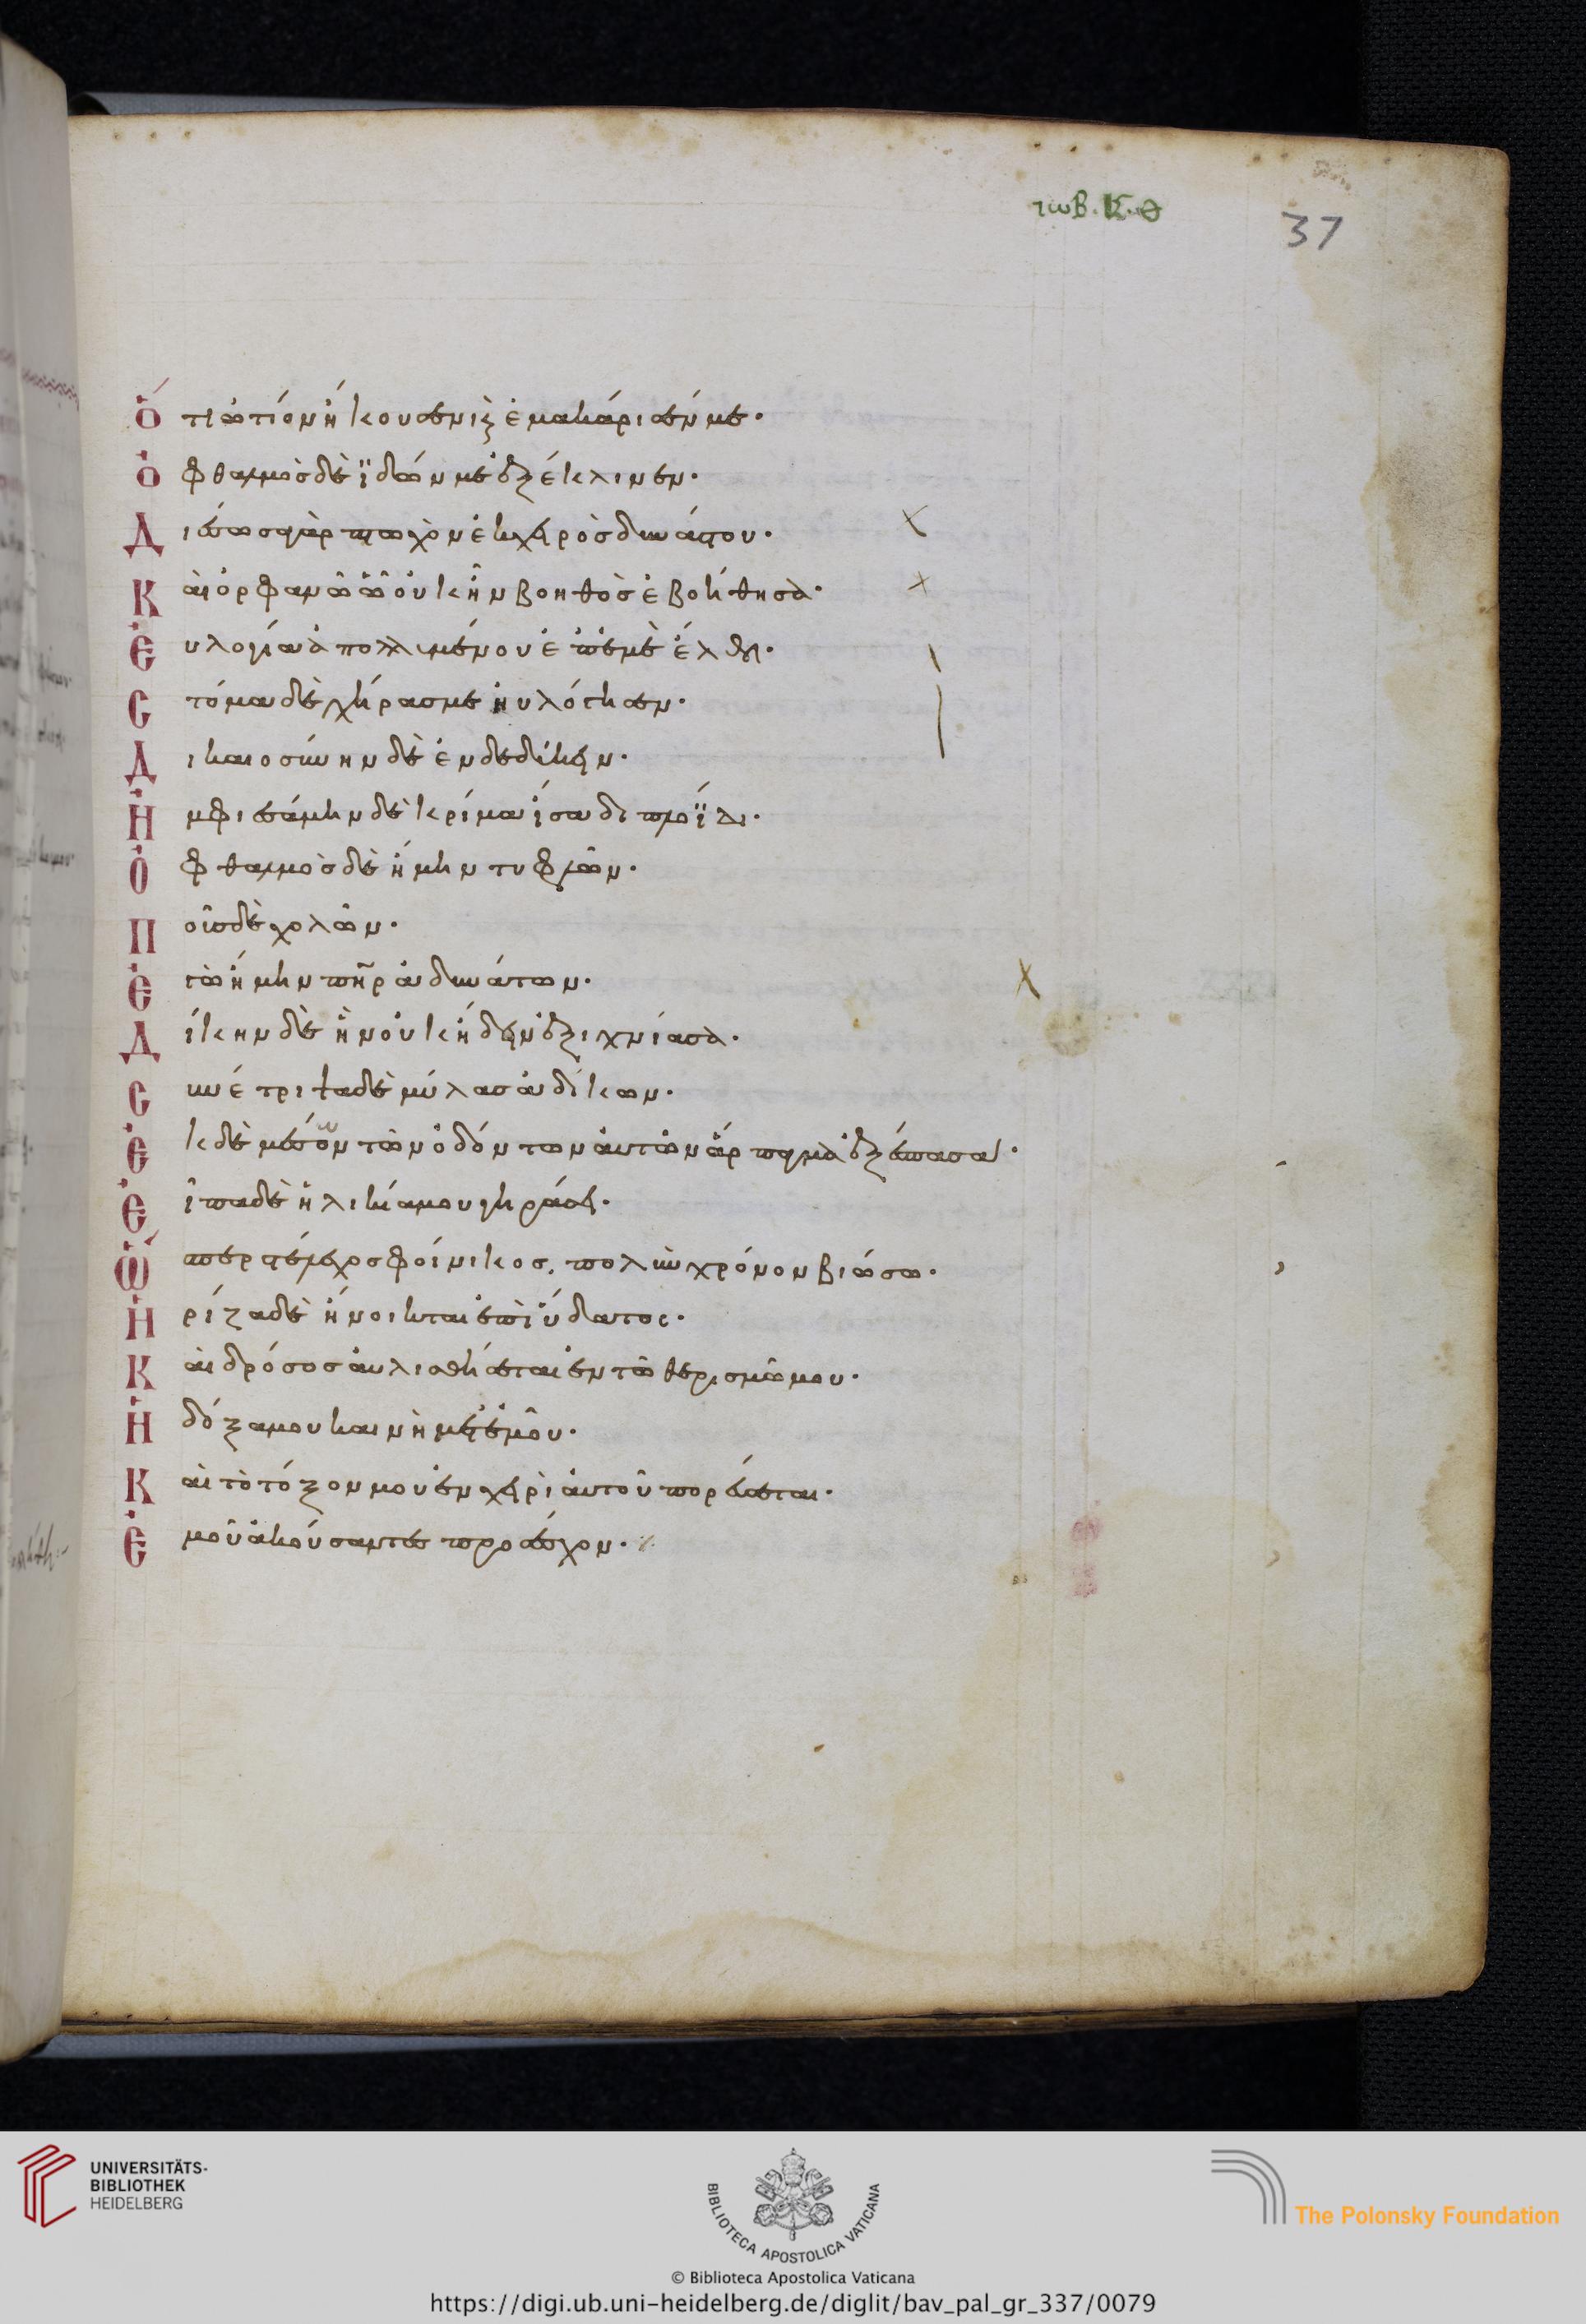 ιωβ. Κ. Θ
37
Ὅτι ὠτίον ἤκουσεν καὶ ἐμακάρισέν με·
Ὀφθαλμὸς δὲ ἰδών με ἐξέκλινεν·
Διέσωσα γὰρ πτωχὸν ἐκ χειρὸς δυνάστου·
Καὶ ὀρφανῶ ὧ οὐκ ἦν βοηθὸς ἐβοήθησα·
Εὐλογία ἀπολλυμένου ἐπ' ἐμὲ ἔλθοι·
Στόμα δὲ χήρας με ηὐλόγησεν·
Δικαιοσύνην δὲ ἐνδεδύκειν·
Ἠμφιασάμην δὲ κρίμα ἴσα διπλοΐδι·
Ὀφθαλμὸς δὲ ἤμην τυφλῶν·
Ποῦς δὲ χολῶν·
Ἐγὼ ἤμην πηρ ἀδυνάτων·
Δίκην δὲ ἣν οὐκ ἤδειν ἐξιχνίασα·
Συνέτριψα δὲ μύλας ἀδίκων·
Ἐκ δὲ μέσου τῶν ὀδόντων αὐτῶν ἅρπαγμα ἐξέσπασα·
Εἶπα δὲ ἡ ἡλικία μου γηράσει·
Ὥσπερ στέλεχος φοίνικος, πολὺν χρόνον βιώσω·
Ἡ ρίζα δὲ ἤνοικται ἐπὶ ὕδατος·
Καὶ δρόσος αὐλισθήσεται ἐν τῶ θερισμῶ μου·
Ἡ δόξα μου καινὴ μετ' ἐμοῦ·
Καὶ τὸ τόξον μου ἐν χειρὶ αὐτοῦ πορεύσεται·
Ἐμοῦ ἀκούσαντες προσέσχον·
UNIVERSITÄTS-
BIBLIOTHEK
HEIDELBERG
BIBLIOTECA APOSTOLICA VATICANA
The Polonsky Foundation
© Biblioteca Apostolica Vaticana
https://digi.ub.uni-heidelberg.de/diglit/bav_pal_gr_337/0079